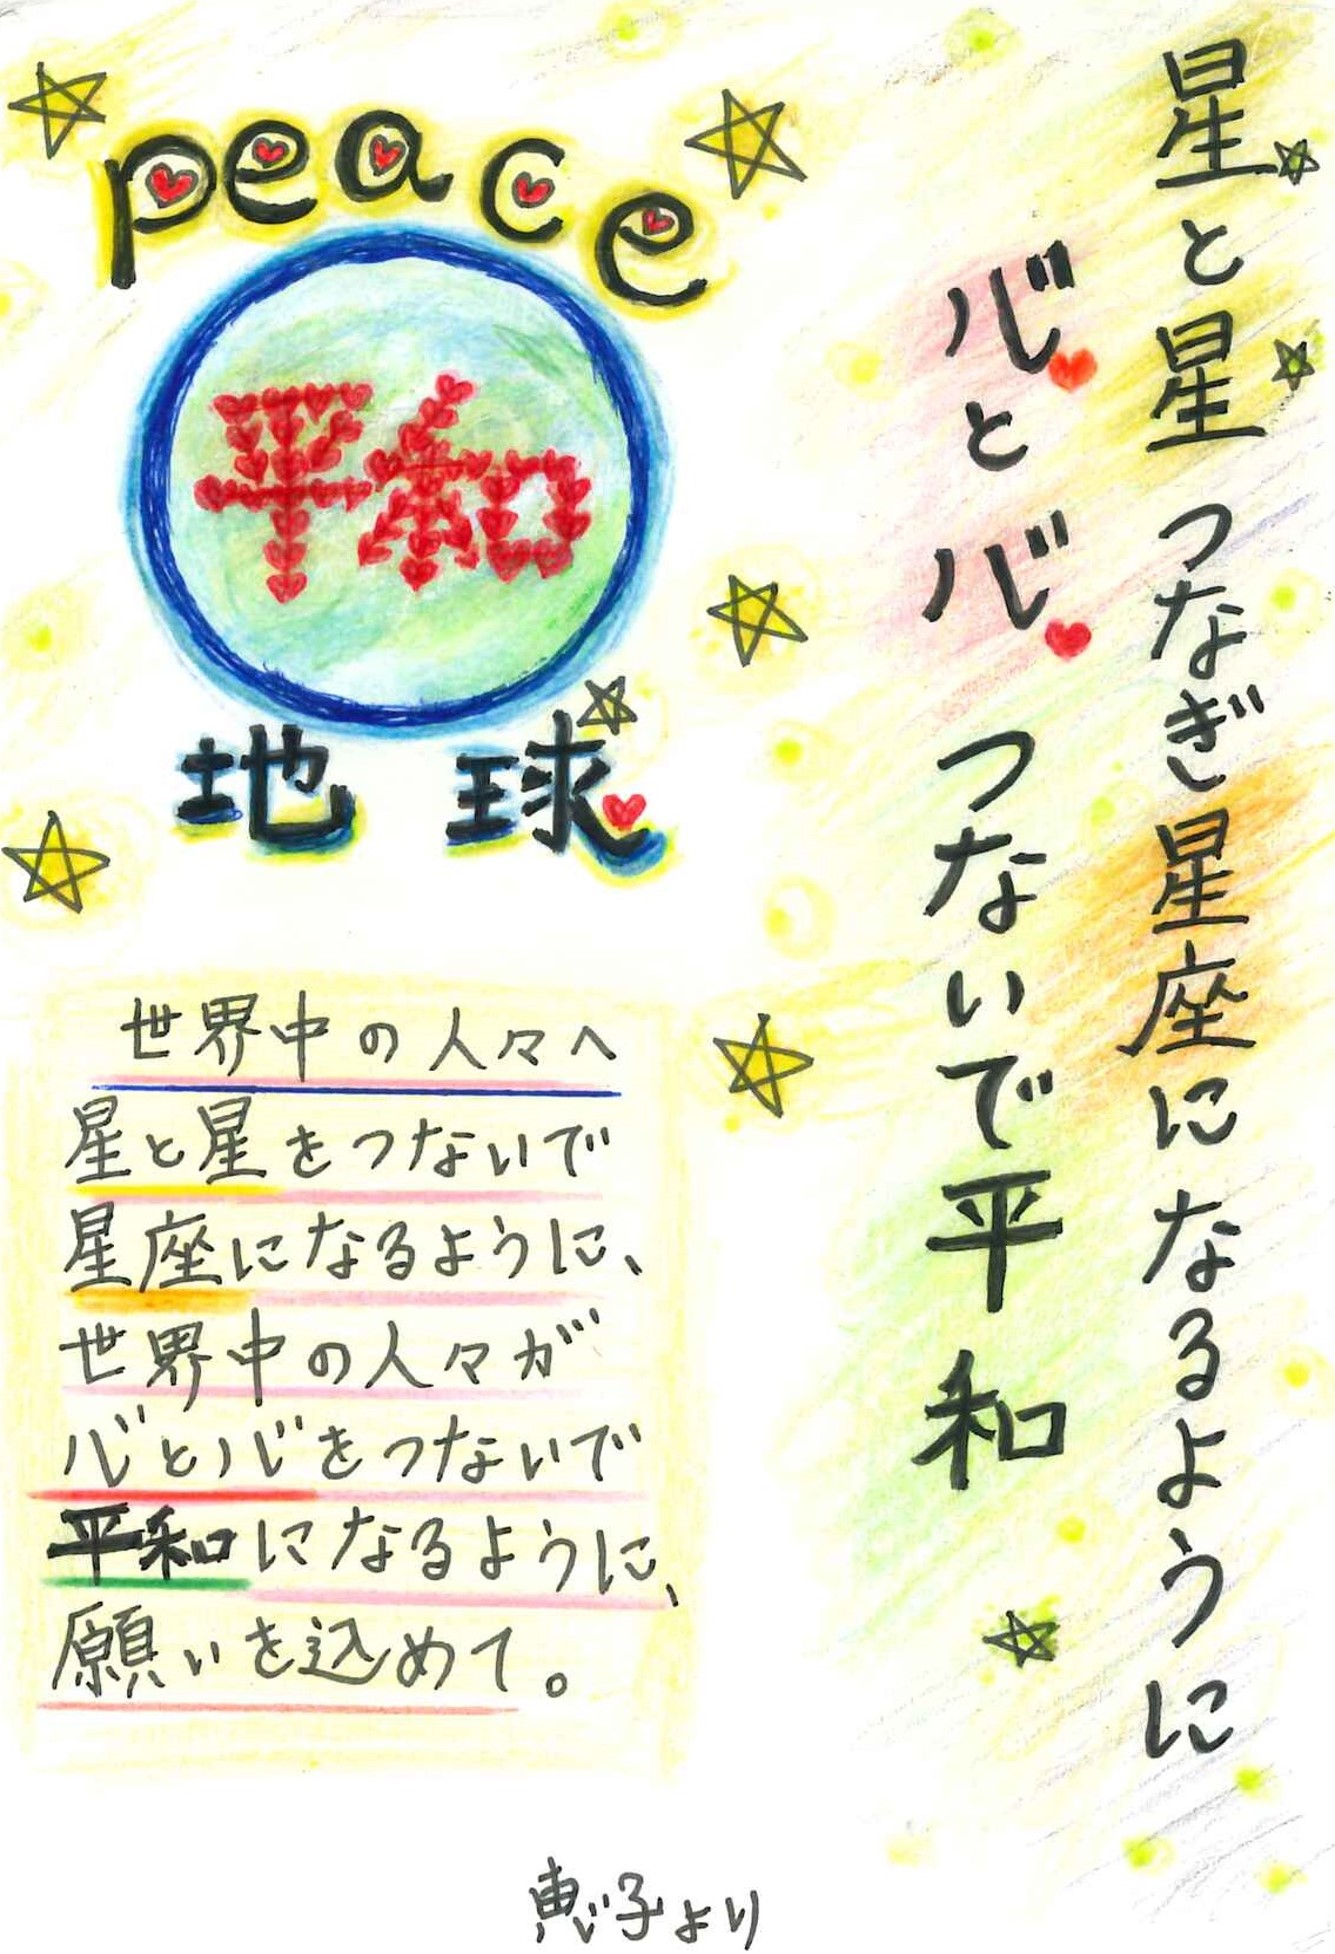 星と星つなぎ星座になるように
心と心つないで平和
peace
平和
地球
世界中の人々へ
星と星をつないで
星座になるように、
世界中の人々が
心と心をつないで
平和になるように、
願いを込めて。
恵子より